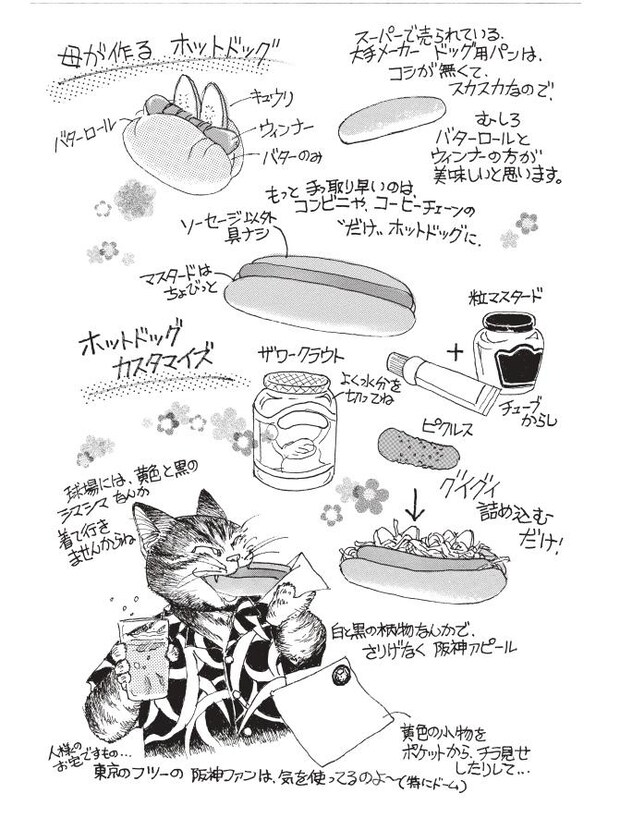 母が作る ホットドッグ
キュウリ
バターロール
ウィンナー
バターのみ
スーパーで売られている、
大手メーカー ドッグ用パンは、
コシが無くて、
スカスカなので、
むしろ
バターロールと
ウィンナーの方が
美味しいと思います。
もっと 手っ取り早いのは、
コンビニや、コーヒーチェーンの
"だけ、ホットドッグに、
ソーセージ以外
具ナシ
マスタードは
ちょびっと
ホットドッグ
カスタマイズ
ザワークラウト
よく水分を
切ってね
粒マスタード
+
チューブ
からし
ピクルス
グイグイ
詰め込む
だけ!
球場には、黄色と黒の
シマシマ なんか
着て行き
ませんからね
白と黒の柄物なんかで、
さりげなく 阪神アピール
黄色の小物を
ポケットから、チラ見せ
したりして…
人様の
お宅ですもの…
東京のフツーの 阪神ファンは、気を使ってるのよ〜(特にドーム)